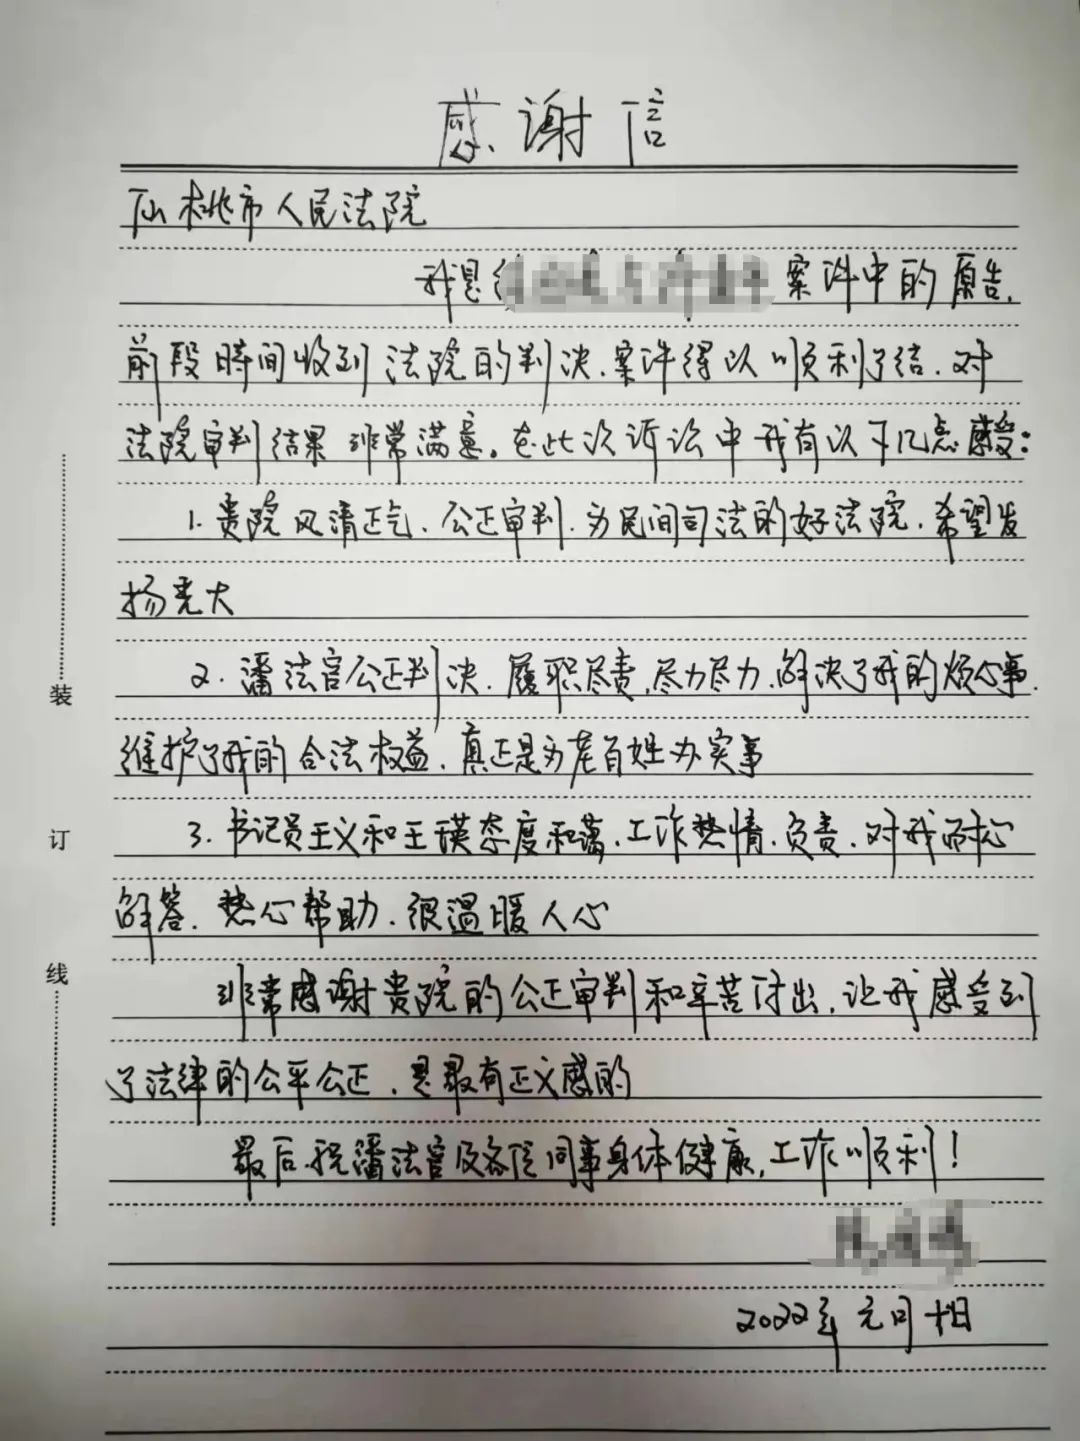 感谢信
仙桃市人民法院
我是 案件中的原告,
前段時间收到法院的判决、案件得以顺利了结,对
法院审判结果非常满意。在此次诉讼中我有以下几点感受:
1. 贵院风清正气、公正审判、为民间司法的好法院,希望发
扬光大
2. 潘法官公正判决、履职尽责,尽力尽力,解决了我的烦心事,
维护了我的合法权益,真正是为老百姓办实事
3. 书记员王义和王瑛态度和蔼、工作热情、负责,对我耐心
解答、热心帮助、很温暖人心
非常感谢贵院的公正审判和辛苦付出,让我感受到
了法律的公平公正,是最有正义感的
最后祝潘法官及各位同事身体健康,工作顺利!
2022年元月十日
装
订
线